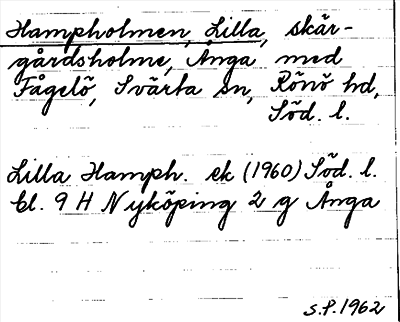 Hampholmen, Lilla, skär-
gårdsholme, Ånga med
Fågelö, Svärta sn, Rönö hd,
Söd. l.
Lilla Hamph. ek (1960) Söd. l.
bl. 9 H Nyköping 2 g Ånga
S.P. 1962